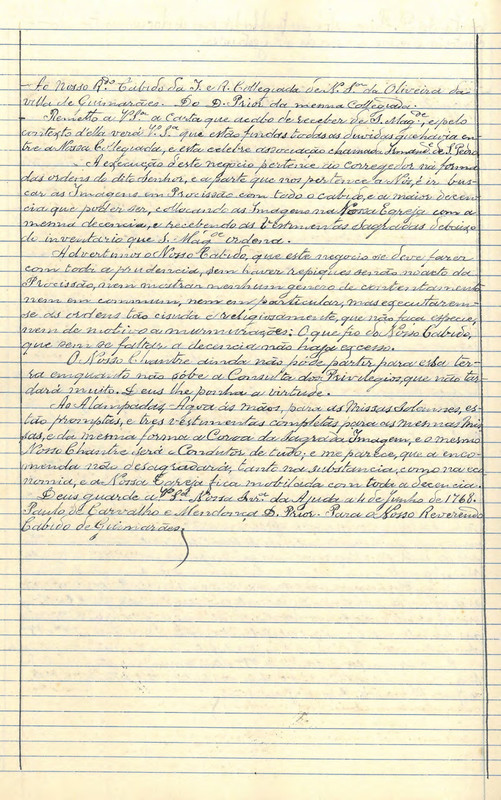 Ao Nosso R.do Cabido da I. e R. Collegiada de N. S.ra da Oliveira da
villa de Guimarães. Do D. Prior da mesma Collegiada.
Remetto a V.ª S.ª a Carta que acabo de receber de S. Mag.de, e pelo
contexto d'ella verá V.ª S.ª que estão findas todas as duvidas que havia en-
tre a Nossa Collegiada, e esta celebre associação chamada Irmand.e de S. Pedro.
A execução d'este negocio pertence ao corregedor na forma
das ordens do dito Senhor, e a parte que nos pertence a Nós, é ir bus-
car as Imagens em Procissão com todo o cabido, e a maior decen-
cia que poder ser, collocando as Imagens na Nossa Egreja com a
mesma decencia, e recebendo as Vestimentas Sagradas debaixo
do inventario que S. Mag.de ordena.
Advertimos o Nosso Cabido, que este negocio se deve fazer
com toda a prudencia, sem haver repiques senão no acto da
Procissão, nem mostrar nenhum genero de contentamento
nem em commum, nem em particular, mas executarem-
se as ordens tão cisuda e religiosamente, que não faça especie,
nem dê motivo a murmurações: O que fio do Nosso Cabido,
que sem se faltar a decencia não haja excesso.
O Nosso Chantre ainda não póde partir para essa ter-
ra emquanto não sóbe a Consulta dos Privilegios, que não tar-
dará muito. Deus lhe ponha a virtude.
As Alampadas, Agua ás mãos, para as Missas Solemnes, es-
tão promptas, e tres vestimentas completas para as mesmas Mis-
sas, e da mesma forma a Coroa da Sagrada Imagem, e o mesmo
Nosso Chantre será o Condutor de tudo, e me parece, que a enco-
menda não desagradará, tanto na substancia, como na eco-
nomia, e a Nossa Egreja fica mobilada com toda a decencia.
Deus guarde a V.ª S.ª Nossa Snr.ª da Ajuda a 4 de Junho de 1768.
Paulo de Carvalho e Mendonça D. Prior. Para o Nosso Reverendo
Cabido de Guimarães.